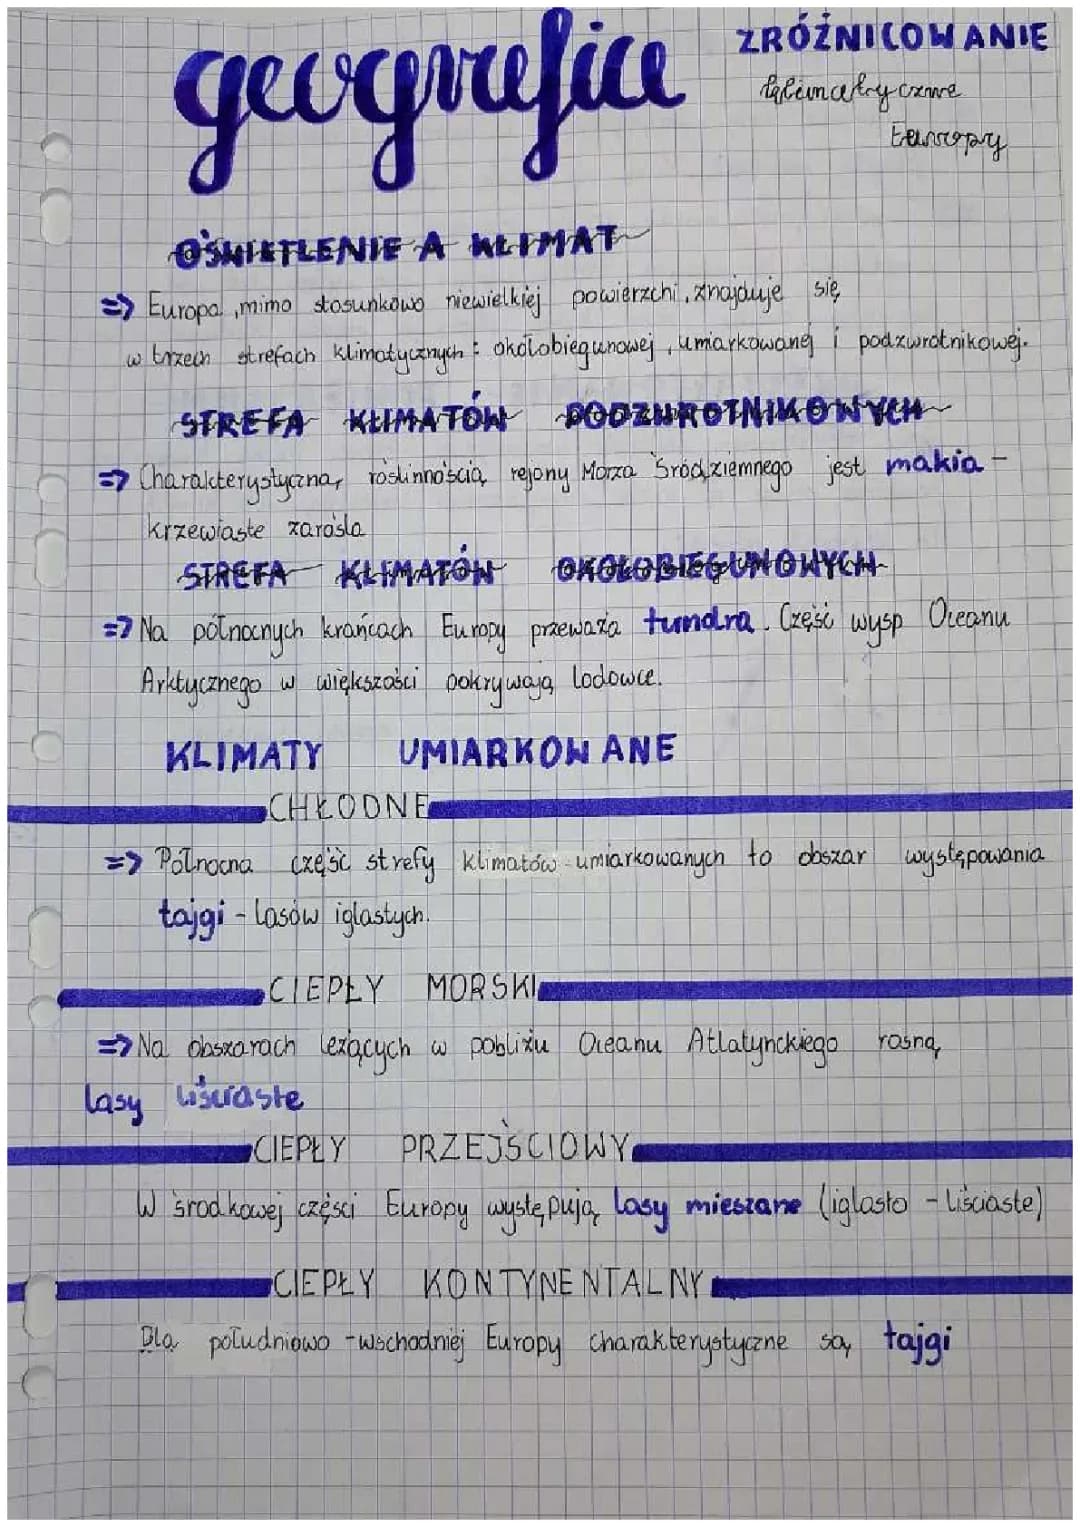 geografia
ZRÓŻNICOWANIE
klimatyczne
Europy
OŚWIETLENIE A KLIMAT
=> Europa, mimo stosunkowo niewielkiej powierzchi, znajduje się
w trzech strefach klimatycznych: okołobiegunowej, umiarkowanej i podzwrotnikowej.
STREFA KLIMATÓW PODZWROTNIKOWYCH
=> Charakterystyczną roślinnością rejony Morza Śródziemnego jest makia -
krzewiaste zarośla
STREFA KLIMATÓW OKOŁOBIEGUNOWYCH
=> Na północnych krańcach Europy przeważa tundra. Część wysp Oceanu
Arktycznego w większości pokrywają lodowce.
KLIMATY UMIARKOWANE
CHŁODNE
=> Północna część strefy klimatów umiarkowanych to obszar występowania
tajgi - lasów iglastych.
CIEPŁY MORSKI
=> Na obszarach leżących w pobliżu Oceanu Atlatynckiego rosną
lasy liściaste
CIEPŁY PRZEJŚCIOWY
W środkowej części Europy występują lasy mieszane (iglasto - liściaste)
CIEPŁY KONTYNENTALNY
Dla południowo - wschodniej Europy charakterystyczne są tajgi